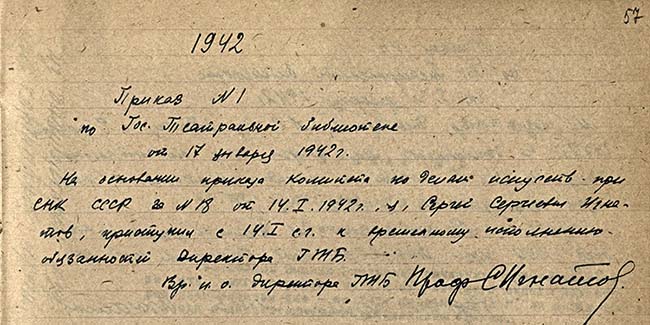 57
1942
Приказ N 1
по Гос. Театральной библиотеке
от 17 января 1942 г.
На основании приказа Комитета по делам искусств при
СНК СССР за N 18 от 14.I.1942 г. я, Сергей Сергеевич Игна-
тов, приступил с 14.I с.г. к временному исполнению
обязанностей Директора ГТБ.
Вр. и. о. директора ГТБ Проф СИгнатов